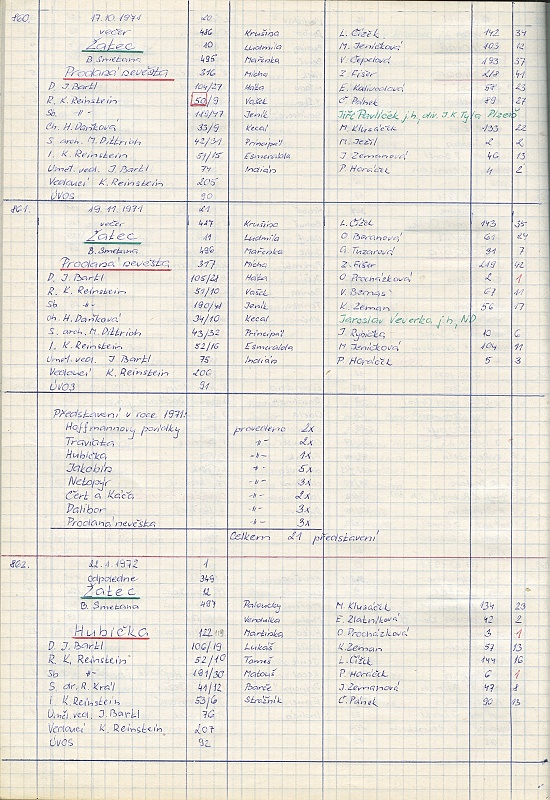 860. 17.10.1971 20
večer 486 Krušina L. Čížek 142 34
Žatec 10 Ludmila M. Jeničková 103 12
B. Smetana 495 Mařenka V. Čepelová 193 57
Prodaná nevěsta 316 Mícha Z. Fišer 218 41
D. J. Bartl 104/27 Háta E. Kalivodová 58 23
R. K. Reinstein 50/9 Vašek Č. Pánek 89 27
Sb. -"- Jeník Jiří Pavlíček j.h., div. J.K. Tyla Plzeň
Ch. H. Daňková 33/9 Kecal M. Klusáček 133 22
S. arch. M. Dittrich 42/31 Principál M. Ješil 2 2
I. K. Reinstein 51/15 Esmeralda J. Zemanová 46 13
Uměl. ved. J. Bartl 74 Indián P. Horáček 4 2
Vedoucí K. Reinstein 205
ÚVOS 90
861. 19.11.1971 21
večer 487 Krušina L. Čížek 143 35
Žatec 11 Ludmila O. Beranová 61 24
B. Smetana 496 Mařenka G. Tuzarová 91 7
Prodaná nevěsta 317 Mícha Z. Fišer 219 42
D. J. Bartl 105/21 Háta O. Procházková 2 1
R. K. Reinstein 51/10 Vašek 67 11
Sb -"- 190/41 Jeník K. Zeman 56 17
Ch. H. Daňková 34/10 Kecal Jaroslav Veverka j.h., ND
S. arch. M. Dittrich 43/32 Principál J. Rybička 10 6
I. K. Reinstein 52/16 Esmeralda M. Jeničková 104 11
Uměl. ved. J. Bartl 75 Indián P. Horáček 5 3
Vedoucí K. Reinstein 206
ÚVOS 91
Představení v roce 1971:
Hoffmannovy povídky provedeno 2x
Traviata -"- 2x
Hubička -"- 1x
Jakobín -"- 5x
Netopýr -"- 3x
Čert a Káča -"- 2x
Dalibor -"- 3x
Prodaná nevěsta -"- 3x
Celkem 21 představení
862. 22.1.1972 1
odpoledne 349
Žatec 12
B. Smetana 497 Paloucký M. Klusáček 134 23
Vendulka E. Zlatníková 42 2
Hubička 122 Martinka O. Procházková 3 1
D. J. Bartl 106/19 Lukáš K. Zeman 57 13
R. K. Reinstein 52/10 Tomeš L. Čížek 144 16
Sb -"- 191/30 Matouš P. Horáček 6 1
S. dr. R. Král 41/12 Barče J. Zemanová 47 8
I. K. Reinstein 53/6 Strážník Č. Pánek 90 13
Uměl. ved. J. Bartl 76
Vedoucí K. Reinstein 207
ÚVOS 92